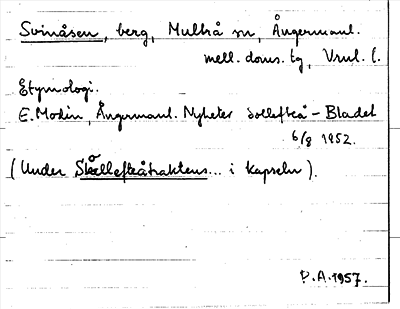 Svinåsen, berg, Multrå sn, Ångermanl.
mell. doms. tg, Vrml. l.
Etymologi.
E. Modin, Ångermanl. Nyheter Sollefteå-Bladet
6/8 1952.
(Under Skollefteåtraktens... i kapseln).
P.A. 1957.